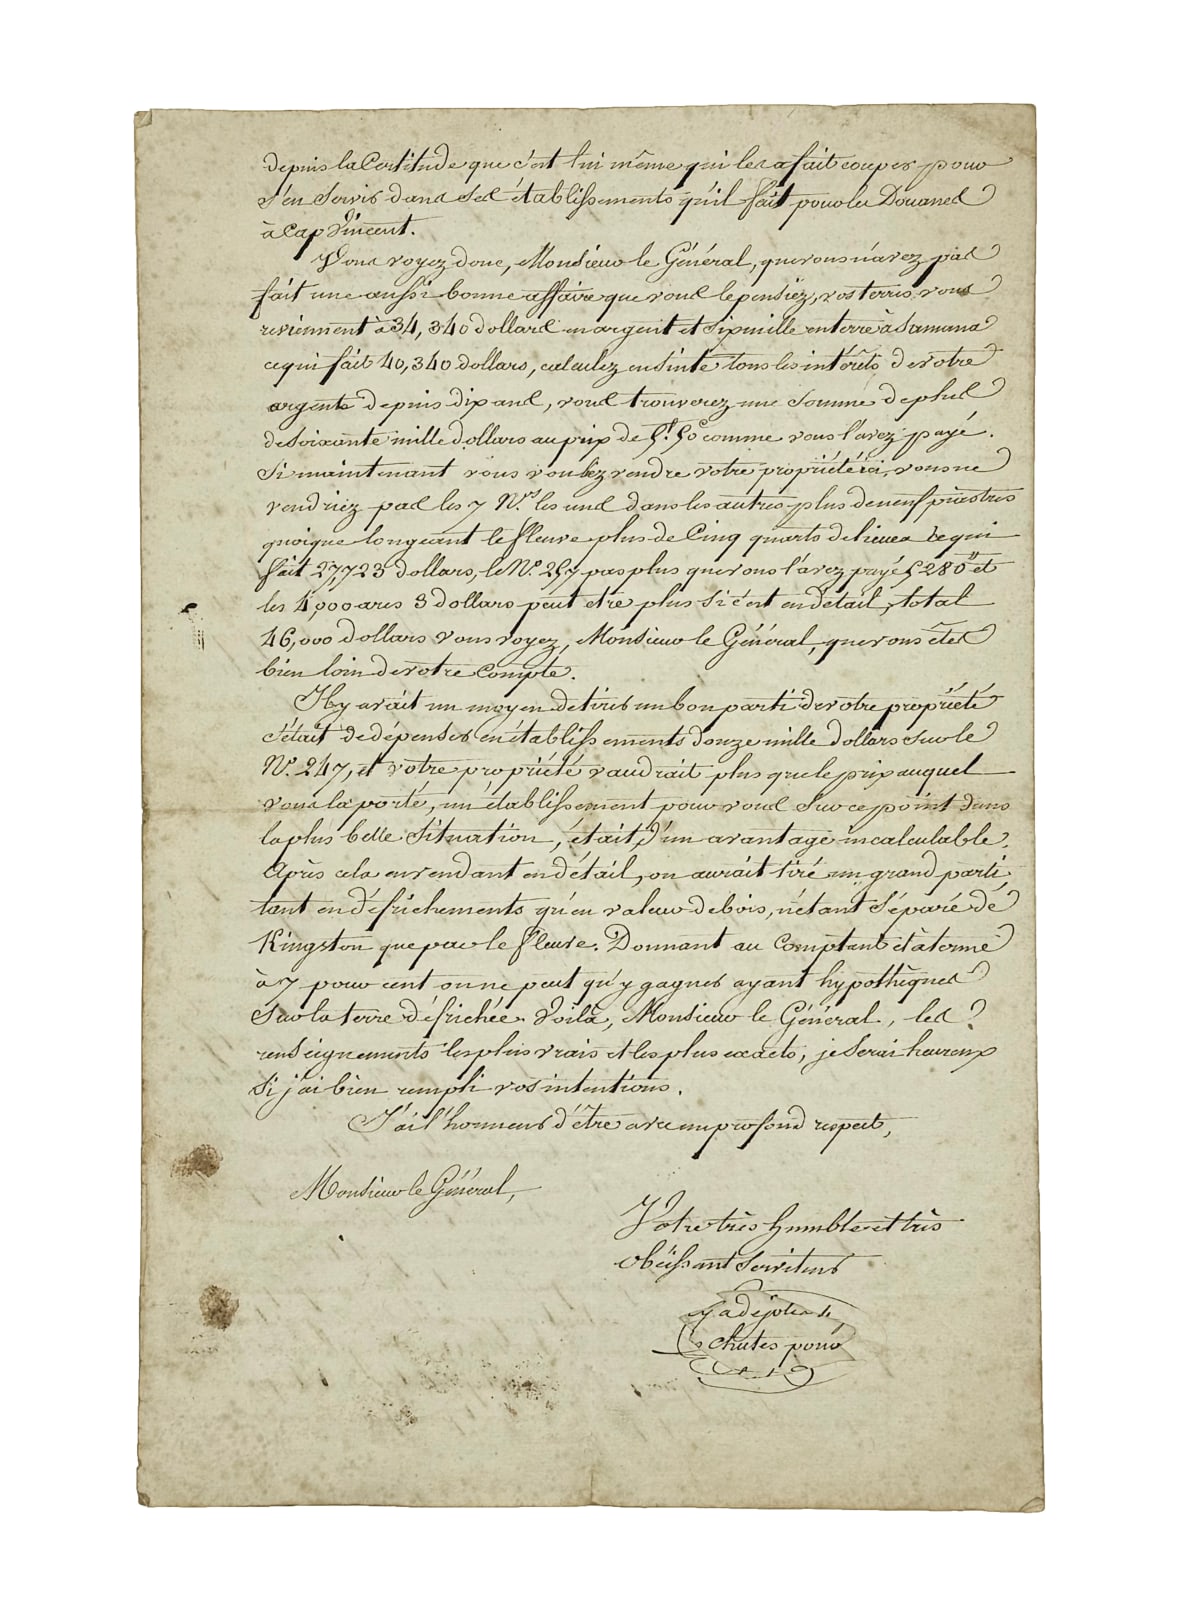 depuis la Certitude que c'est lui même qui les a fait couper pour
s'en servir dans ses établissements qu'il fait pour les Douanes
à Cap Vincent.
Vous voyez donc, Monsieur le Général, que vous n'avez pas
fait une aussi bonne affaire que vous le pensiez, vos terres vous
reviennent à 34,340 dollars en argent et six mille en terre à Samana
ce qui fait 40,340 dollars, calculez ensuite tous les intérêts de votre
argents depuis dix ans, vous trouverez une somme de plus
de soixante mille dollars au prix de comme vous l'avez payé.
Si maintenant vous voulez vendre votre propriété ici, vous ne
vendriez pas les 7 Nos. les uns dans les autres plus de neuf piastres
quoique longeant le fleuve plus de Cinq quarts de lieues ce qui
fait 27,723 dollars, le No. 257 pas plus que vous l'avez payé 280 et
les 4,000 acres 3 dollars peut etre plus si c'est en détail, total
46,000 dollars vous voyez, Monsieur le Général, que vous êtes
bien loin de votre compte.
Il y avait un moyen de tirer un bon parti de votre propriété
c'était de dépenser en établissements douze mille dollars sur le
No. 247, et votre propriété vaudrait plus que le prix auquel
vous la porté, un établissement pour vous sur ce point dans
la plus belle situation, était d'un avantage incalculable.
Après cela en vendant en détail, on aurait tiré un grand parti
tant en défrichements qu'en valeur de bois, n'étant séparé de
Kingston que par le fleuve. Donnant au Comptant et à terme
à 7 pour cent on ne peut qu'y gagner ayant hypothèques
sur la terre défrichée. Voilà, Monsieur le Général, les
renseignements les plus vrais et les plus exacts, je serai heureux
si j'ai bien rempli vos intentions.
J'ai l'honneur d'être avec un profond respect,
Monsieur le Général,
Votre très humble et très
obéissant Serviteur